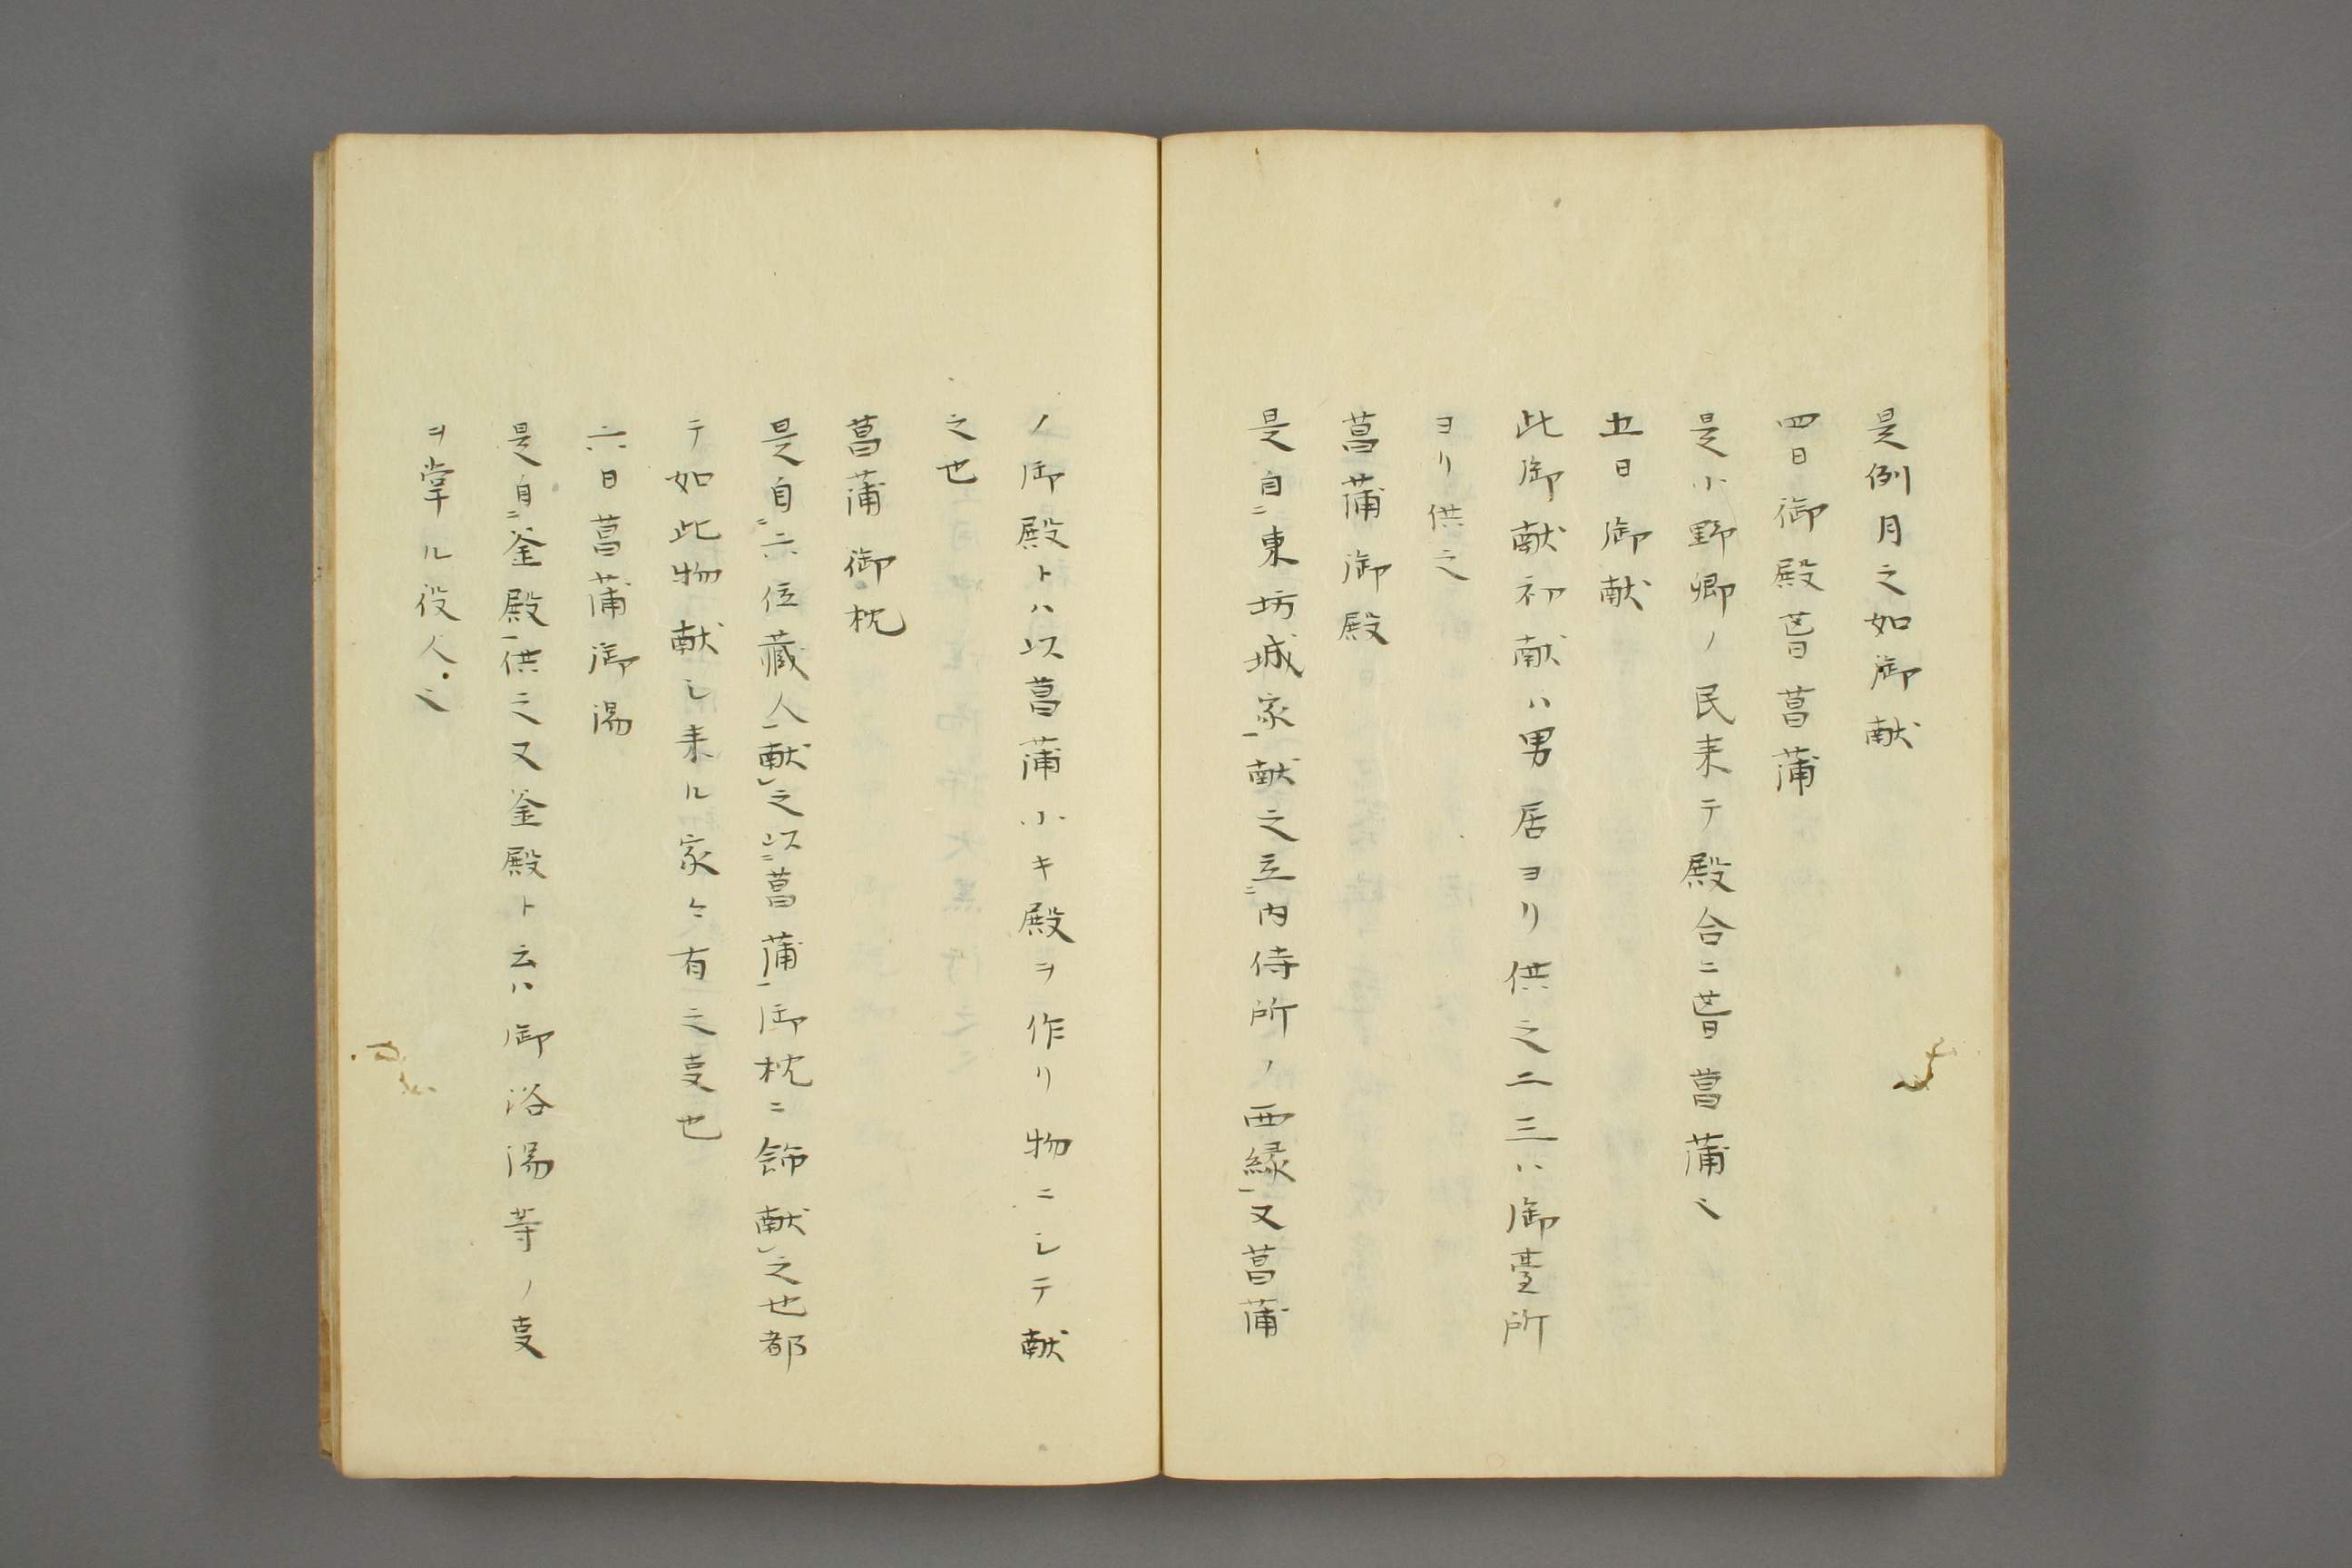 是例月之如御献
四日御殿葺菖蒲
是小野郷ノ民来テ殿合ニ葺菖蒲〻
五日御献
此御献初献ハ男居ヨリ供之二三ハ御臺所
ヨリ供之
菖蒲御殿
是自ニ東坊城家一献之立ニ内侍所ノ西縁一又菖蒲
ノ御殿トハ以菖蒲小キ殿ヲ作リ物ニシテ献
之也
菖蒲御枕
是自ニ六位蔵人一献レ之以ニ菖蒲一御枕ニ飾献レ之也都
テ如此物献シ来ル家〻有之叓也
六日菖蒲御湯
是自ニ釜殿一供之又釜殿ト云ハ御浴湯等ノ叓
ヲ掌ル役人〻